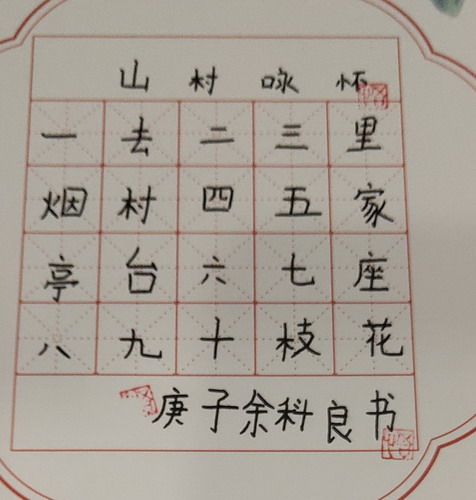 山村咏怀
一去二三里
烟村四五家
亭台六七座
八九十枝花
庚子余科良书